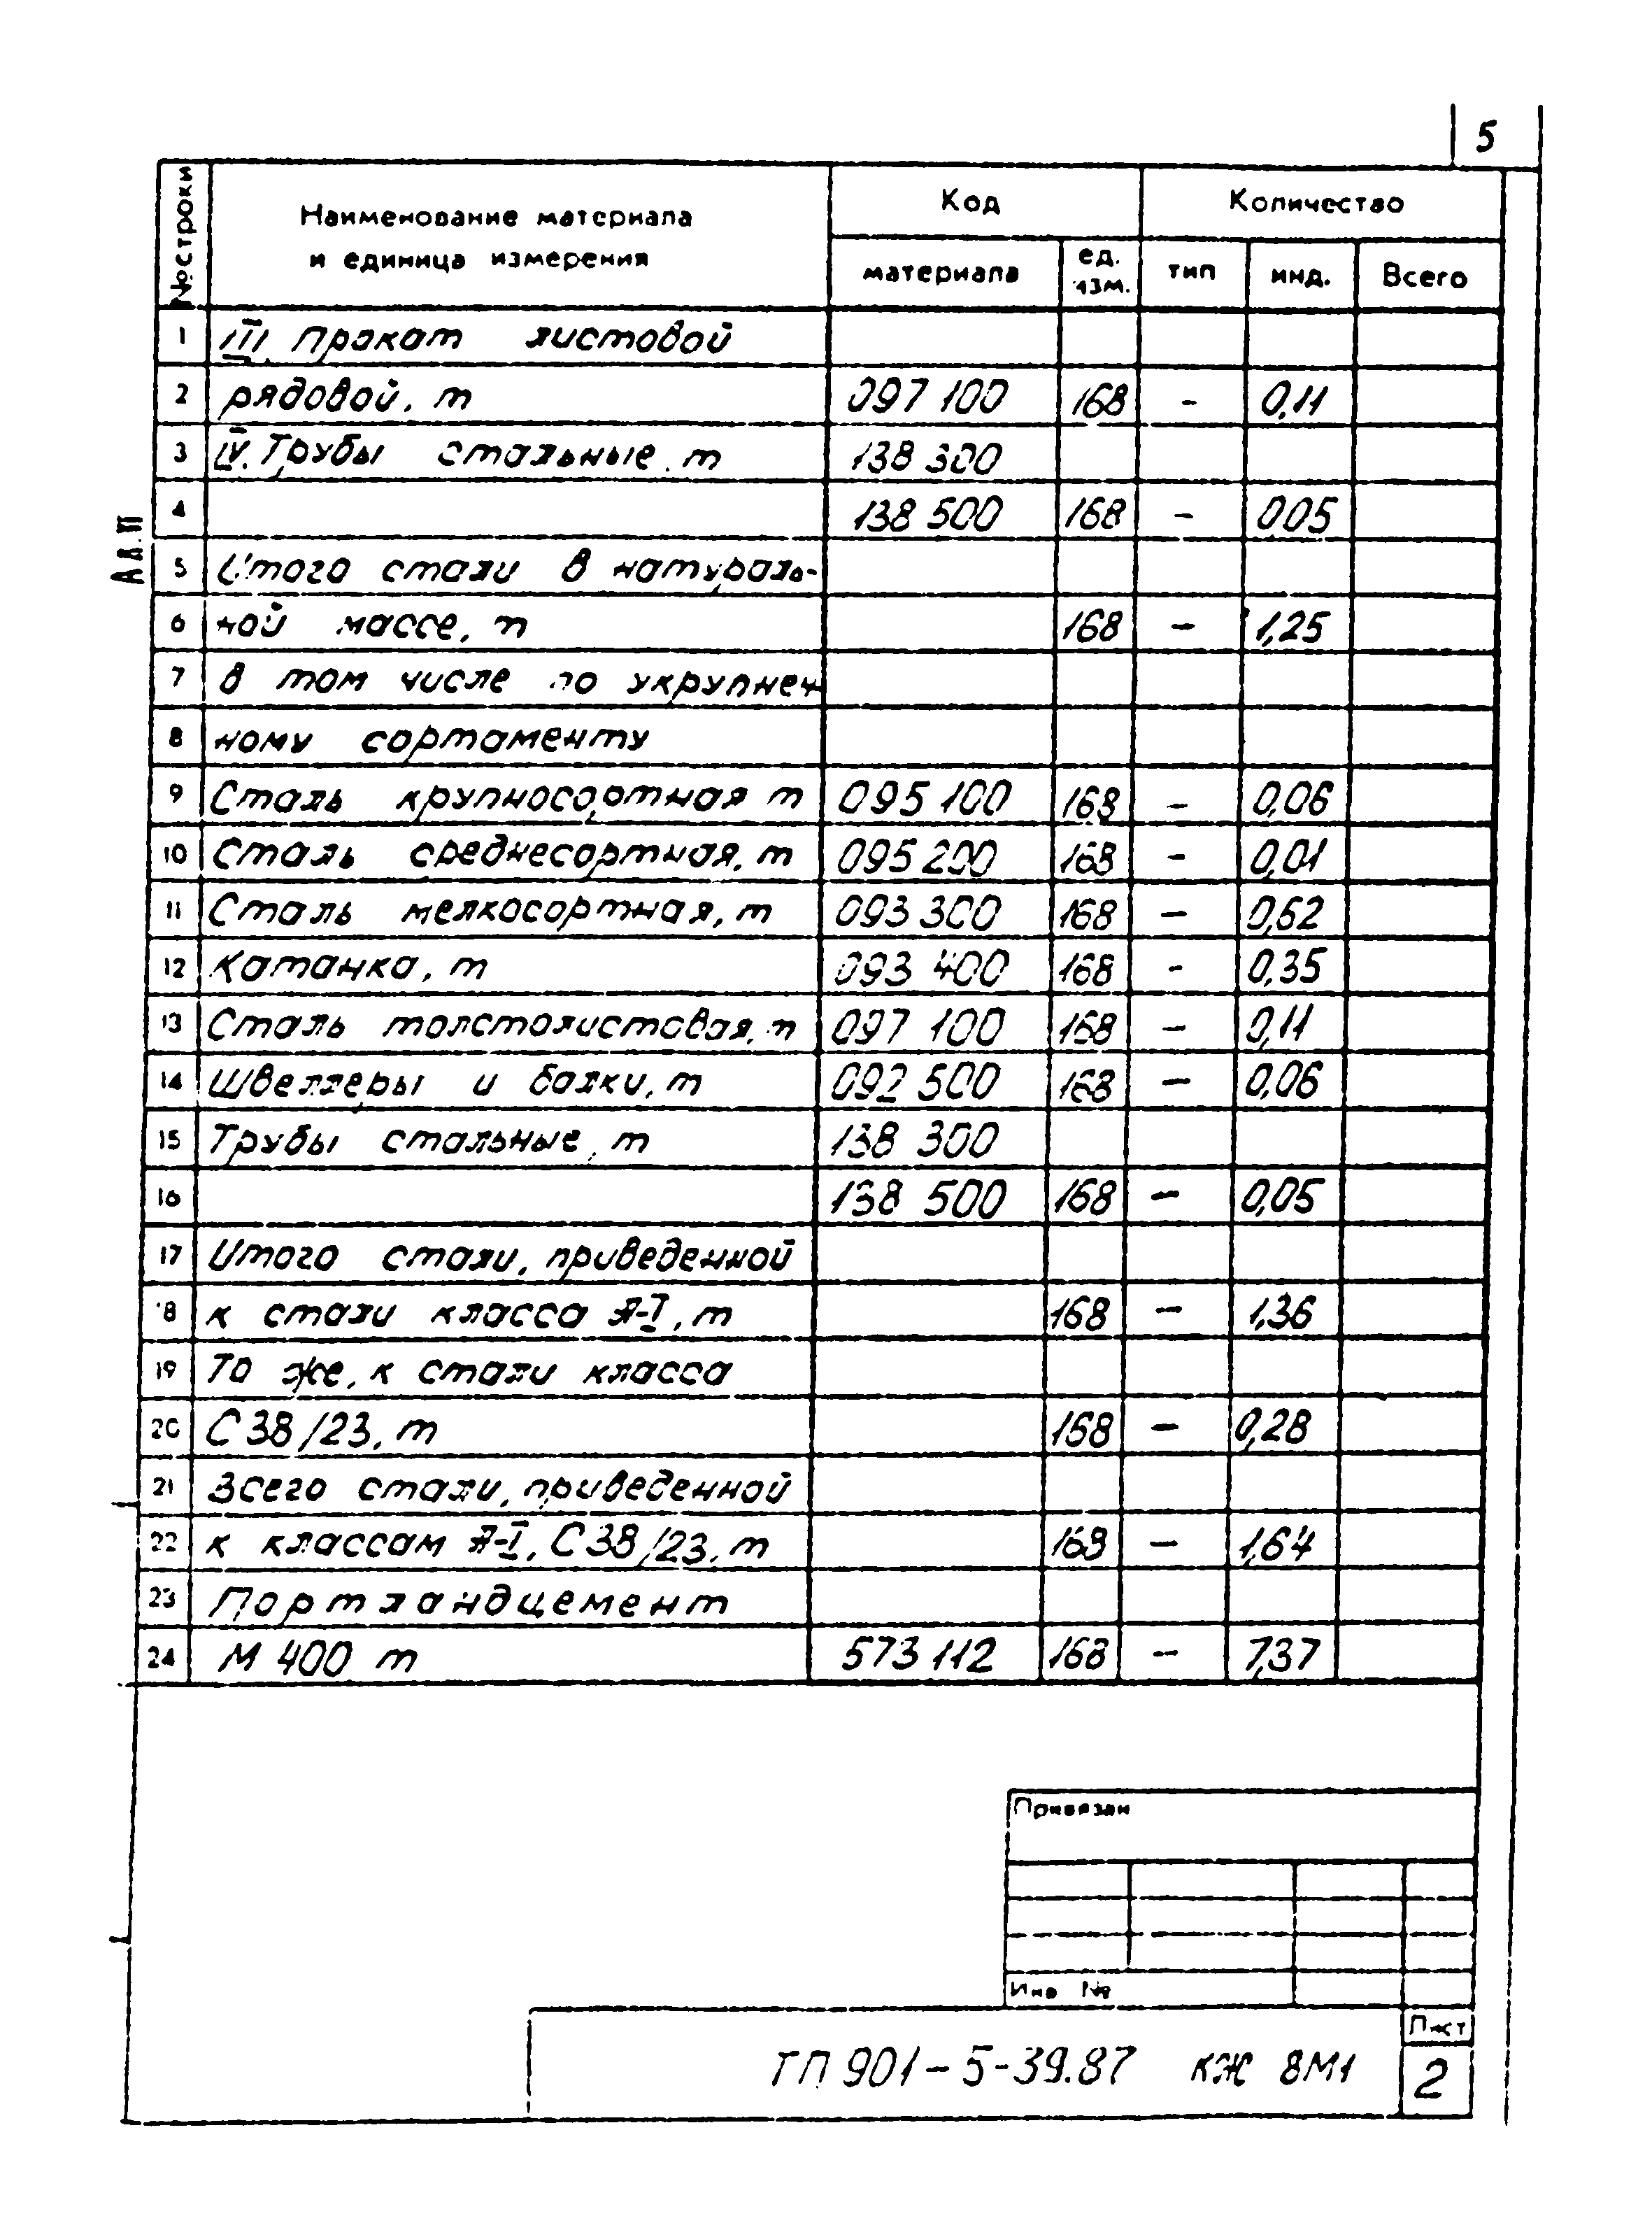 5
№ строки Наименование материала и единица измерения Код Количество
материала ед. изм. тип инд. Всего
1 III Прокат листовой
2 рядовой, т 097 100 168 - 0,11
3 IV. Трубы стальные, т 138 300
4 138 500 168 - 0,05
Ал. VI
5 Итого стали в натураль-
6 ной массе, т 168 - 1,25
7 в том числе по укрупнен
8 ному сортаменту
9 Сталь крупносортная т 095 100 168 - 0,06
10 Сталь среднесортная, т 095 200 168 - 0,01
11 Сталь мелкосортная, т 093 300 168 - 0,62
12 Катанка, т 093 400 168 - 0,35
13 Сталь толстолистовая, т 097 100 168 - 0,11
14 Швеллеры и балки, т 092 500 168 - 0,06
15 Трубы стальные, т 138 300
16 138 500 168 - 0,05
17 Итого стали, приведенной
18 к стали класса А-I, т 168 - 1,36
19 То же, к стали класса
20 С 38/23, т 168 - 0,28
21 Всего стали, приведенной
22 к классам А-I, С 38/23, т 168 - 1,64
23 Портландцемент
24 М 400 т 573 112 168 - 7,37
Привязан
Инв №
Лист
ТП 901-5-39.87 КЖ 8М1 2